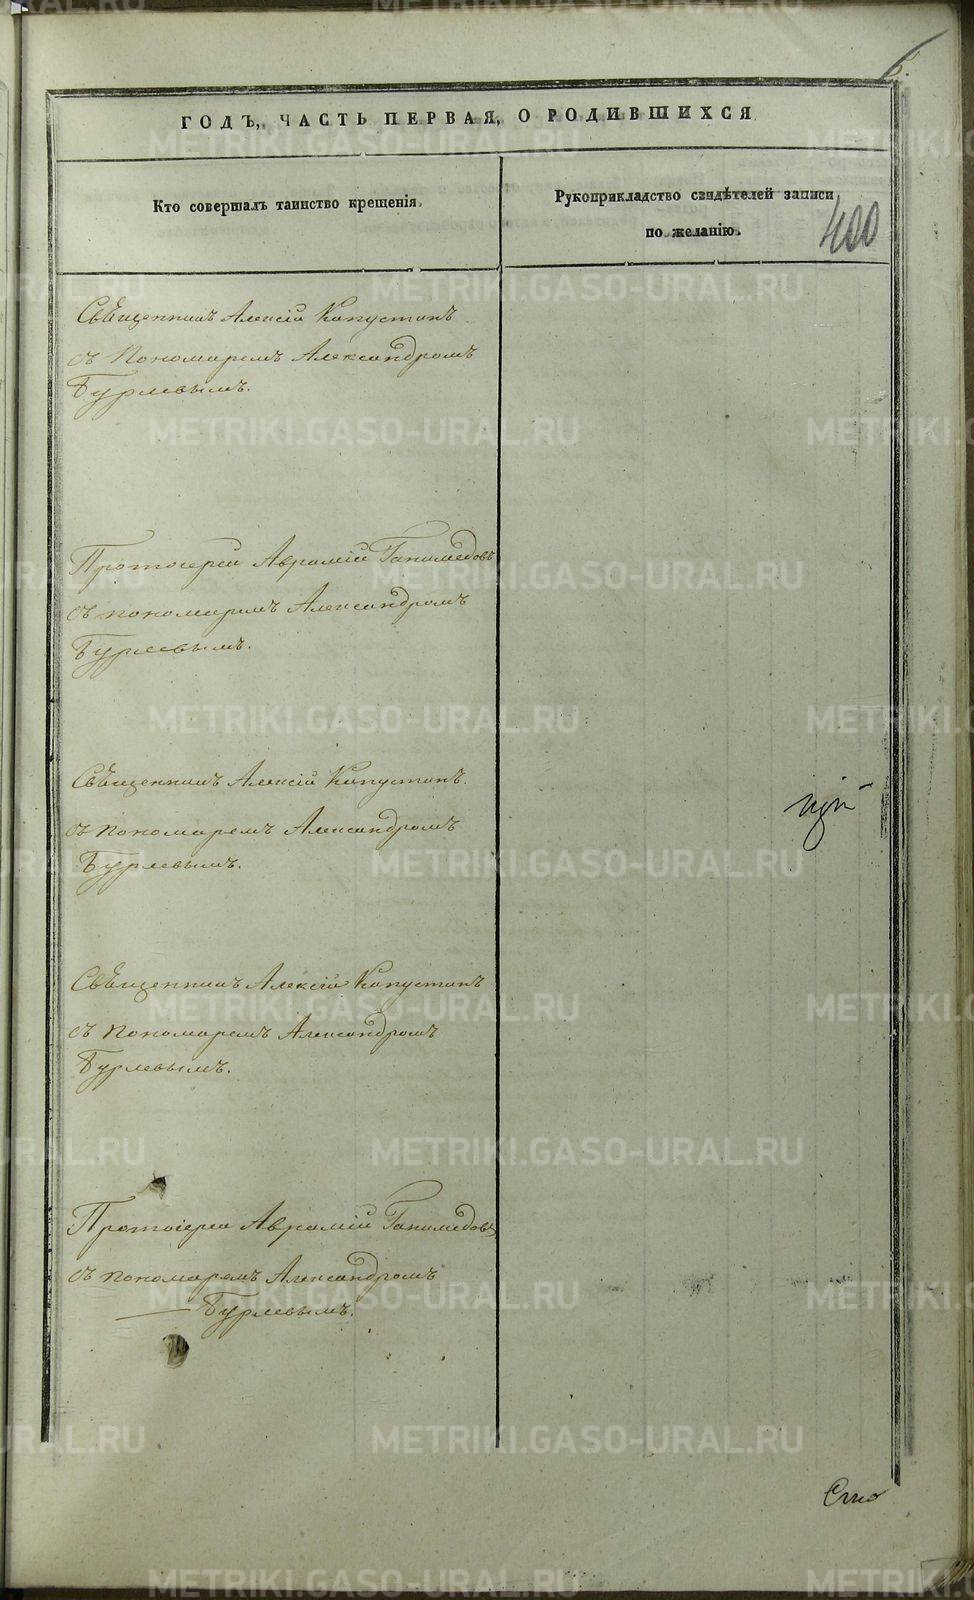 6.
ГОДЪ, ЧАСТЬ ПЕРВАЯ, О РОДИВШИХСЯ
Кто совершалъ таинство крещенія.
Рукоприкладство свидѣтелей записи
по желанію.
400
Священникъ Алексій Капустинъ
съ Пономаремъ Александромъ
Бурлевымъ.
Протоіерей Аврамій Ганимедовъ
съ пономаремъ Александромъ
Бурлевымъ.
Священникъ Алексій Капустинъ.
съ пономаремъ Александромъ
Бурлевымъ.
Священникъ Алексій Капустинъ
съ пономаремъ Александромъ
Бурлевымъ.
Протоіерей Аврамій Ганимедовъ
съ пономаремъ Александромъ
Бурлевымъ.
METRIKI.GASO-URAL.RU